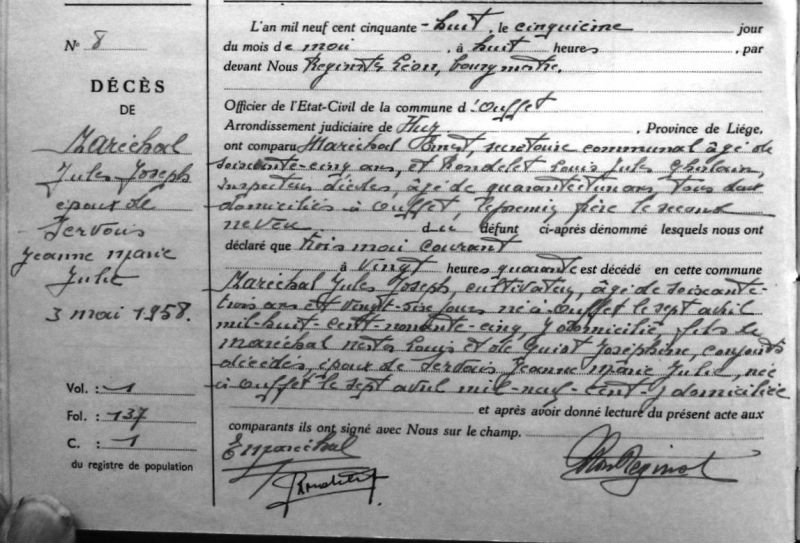 N° 8
DÉCÈS
DE
Maréchal
Jules Joseph
époux de
Servais
Jeanne Marie
Julie
3 mai 1958.
Vol. : 1
Fol. : 137
C. : 1
du registre de population
L'an mil neuf cent cinquante-huit, le cinquième jour
du mois de mai, à huit heures, par
devant Nous Reginster Léon, bourgmestre,
Officier de l'Etat-Civil de la commune d'Ouffet
Arrondissement judiciaire de Huy, Province de Liége,
ont comparu Maréchal Ernest, secrétaire communal âgé de
soixante-cinq ans, et Rondelet Louis Jules Ghislain,
inspecteur d'écoles, âgé de quarante et un ans, tous deux
domiciliés à Ouffet, le premier frère le second
neveu du défunt ci-après dénommé lesquels nous ont
déclaré que trois mai courant
à vingt heures quarante est décédé en cette commune
Maréchal Jules Joseph, cultivateur, âgé de soixante-
trois ans et vingt-six jours né à Ouffet le sept avril
mil-huit-cent-nonante-cinq, y domicilié, fils de
Maréchal Louis et de Joséphine, conjoints
décédés, époux de Servais Jeanne Marie Julie, née
à Ouffet le sept avril mil-neuf-cent- y domiciliée
et après avoir donné lecture du présent acte aux
comparants ils ont signé avec Nous sur le champ.
E Maréchal
Rondelet